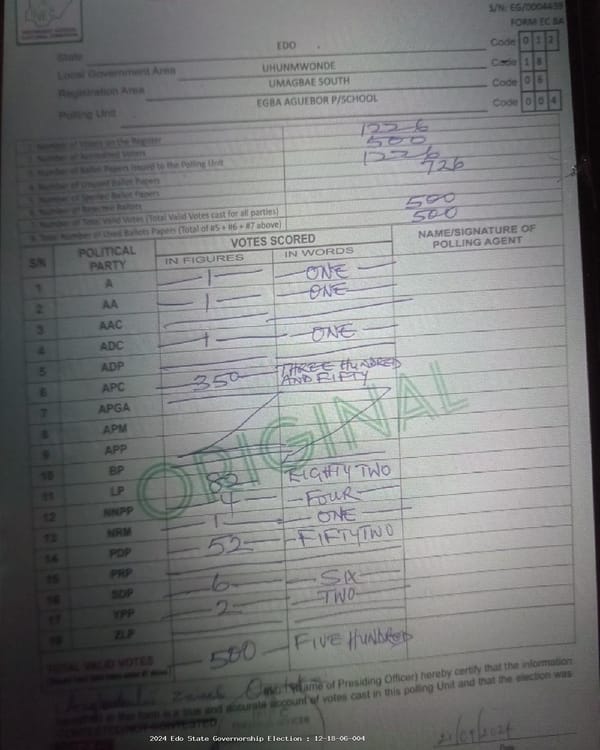 S/N: EG/0004439
FORM EC 8A
State EDO Code 0 1 2
Local Government Area UHUNMWONDE Code 1 8
Registration Area UMAGBAE SOUTH Code 0 6
Polling Unit EGBA AGUEBOR P/SCHOOL Code 0 0 4
Number of Voters on the Register 1226
Number of Accredited Voters 500
Number of Ballot Papers Issued to the Polling Unit 1226
Number of Unused Ballot Papers 726
Number of Spoiled Ballot Papers
Number of Rejected Ballots
Number of Total Valid Votes (Total Valid Votes cast for all parties) 500
Total Number of Used Ballots Papers (Total of #5 + #6 + #7 above) 500
S/N POLITICAL PARTY VOTES SCORED NAME/SIGNATURE OF POLLING AGENT
IN FIGURES IN WORDS
1 A 1 ONE
2 AA 1 ONE
3 AAC
4 ADC 1 ONE
5 ADP
6 APC 350 THREE HUNDRED AND FIFTY
7 APGA
8 APM
9 APP
10 BP
11 LP 82 EIGHTY TWO
12 NNPP 4 FOUR
13 NRM 1 ONE
14 PDP 52 FIFTY TWO
15 PRP
16 SDP 6 SIX
17 YPP 2 TWO
18 ZLP
TOTAL VALID VOTES 500 FIVE HUNDRED
ORIGINAL
(Name of Presiding Officer) hereby certify that the information
contained in this form is a true and accurate account of votes cast in this polling Unit and that the election was
21/09/2024
2024 Edo State Governorship Election : 12-18-06-004